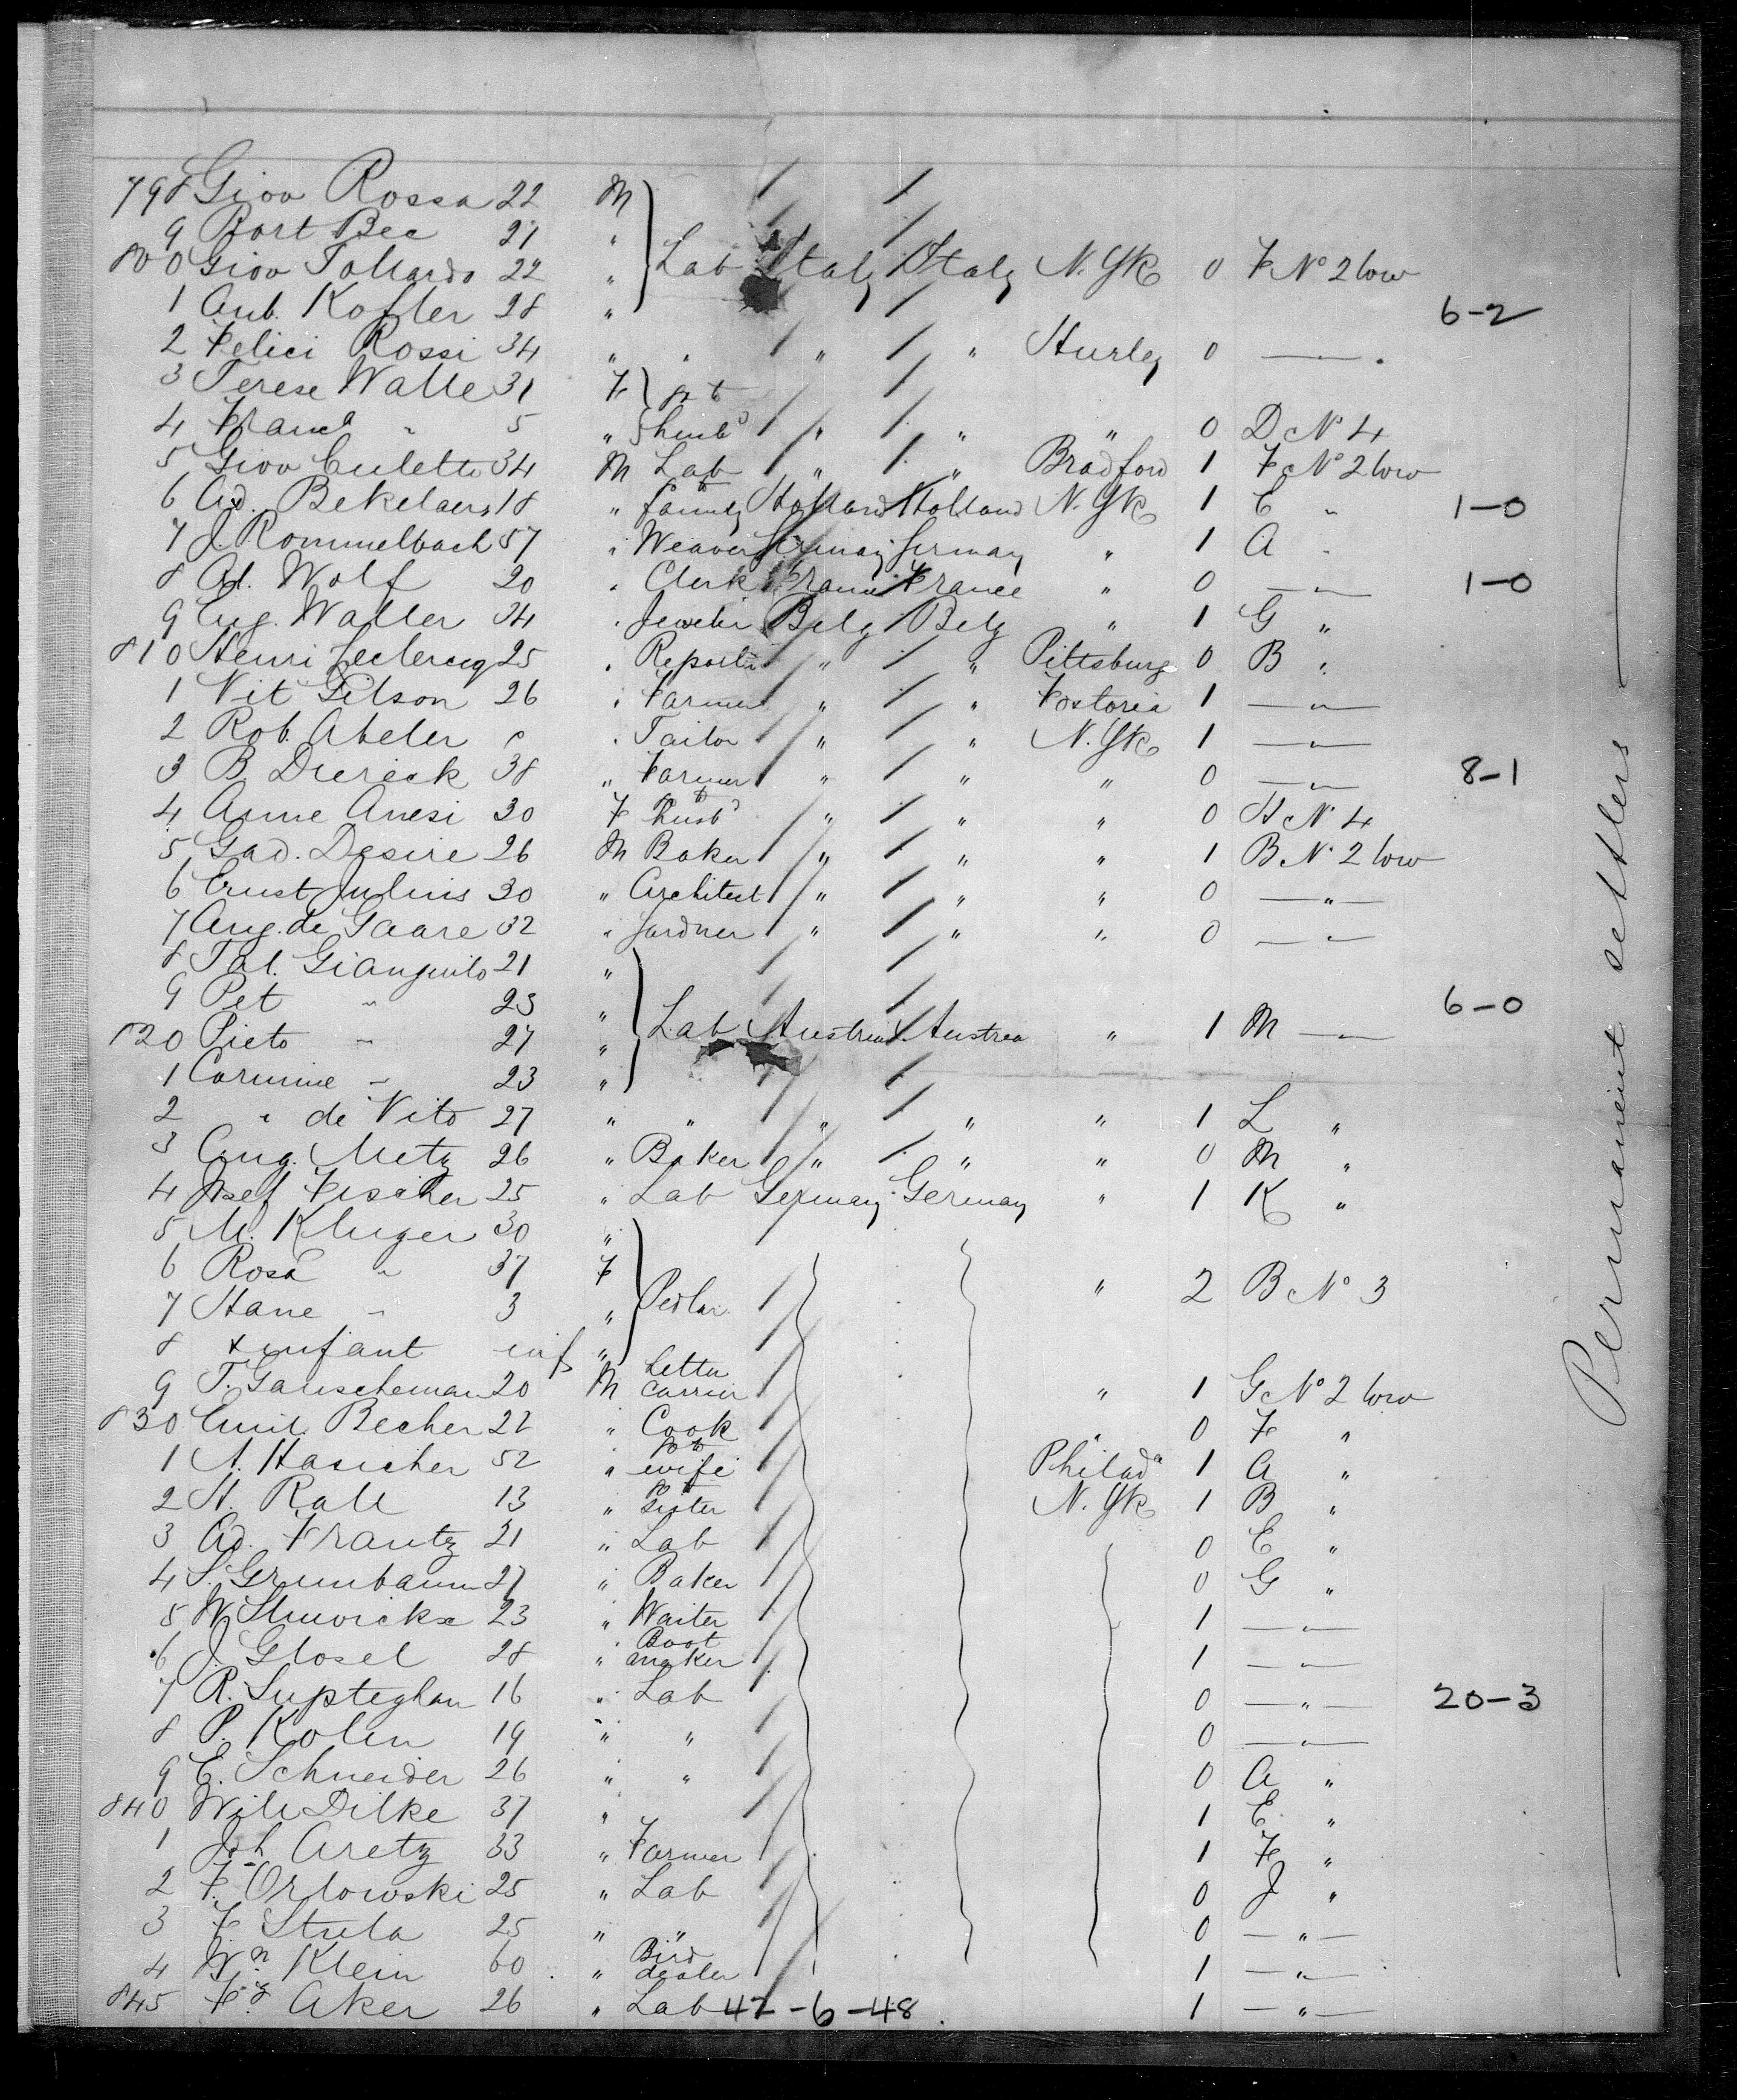 798 Giov Rossa 22 M
9 Bort Bee 21 "
800 Giov Tollardo 22 " Lab Italy Italy N. Yk 0 F No 2 low
1 Ant. Kofler 28 " 6-2
2 Felici Rossi 34 " " " " Hurley 0 — " —
3 Terese Walle 31 F
4 Franca " 5 " husbd " " " 0 D No 4
5 Giov Culetto 34 M Lab " " Bradford 1 F No 2 low
6 Ad. Bekelaers 18 " family Holland Holland N. Yk 1 E " 1-0
7 J. Rommelbach 57 " Weaver Germay Germay " 1 A "
8 Ad. Wolf 20 " Clerk France France " 0 — " — 1-0
9 Eug. Waller 34 " Jeweler Belg Belg " 1 G "
810 Henri Leclercq 25 " Reporter " " Pittsburg 0 B "
1 Vit Gilson 26 " Farmer " " Fostoria 1 — " —
2 Rob. Abeler " Tailor " " N. Yk 1 — " —
3 B. Dierick 38 " Farmer " " " 0 — " — 8-1
4 Anne Anesi 30 F husbd " " " 0 H No 4
5 Gad. Desire 26 M Baker " " " 1 B No 2 low
6 Ernst Julius 30 " Architect " " " 0 — " —
7 Aug. de Gaare 32 " Gardner " " " 0 — " —
8 Tal. Gianquito 21 "
9 Pet " 23 " 6-0
820 Pieto " 27 " Lab Austria Austria " 1 M — " —
1 Carmine " 23 "
2 " de Vito 27 " " " " " 1 L "
3 Aug. Metz 26 " Baker " " " 0 M "
4 Josef Fischer 25 " Lab Germay Germay " 1 K "
5 M. Kluger 30 "
6 Rosa " 37 F
7 Hane " 3 " Pedlar " 2 B No 3
8 + infant inf "
9 T. Ganscheman 20 M Letter carrier " 1 G No 2 low
830 Emil Becher 22 " Cook " 0 F "
1 A. Hascher 52 " wife Philada 1 A "
2 H. Rall 13 " Sister N. Yk 1 B "
3 Ad. Frantz 21 " Lab 0 E "
4 S. Grunbaum 27 " Baker 0 G "
5 W. 23 " Waiter 1 — " —
6 J. Glosel 28 " Boot maker 1 — " —
7 R. 16 " Lab 0 — " — 20-3
8 P. Kolin 19 " " 0 — " —
9 E. Schneider 26 " " 0 A "
840 Will Dilke 37 " 1 E "
1 Joh Aretz 33 " Farmer 1 F "
2 F. Orlowski 25 " Lab 0 J "
3 F. Stula 25 " " 0 — " —
4 Wm Klein 60 " Bird dealer 1 — " —
845 Fr Aker 26 " Lab 47-6-48 1 — " —
Permanent settlers